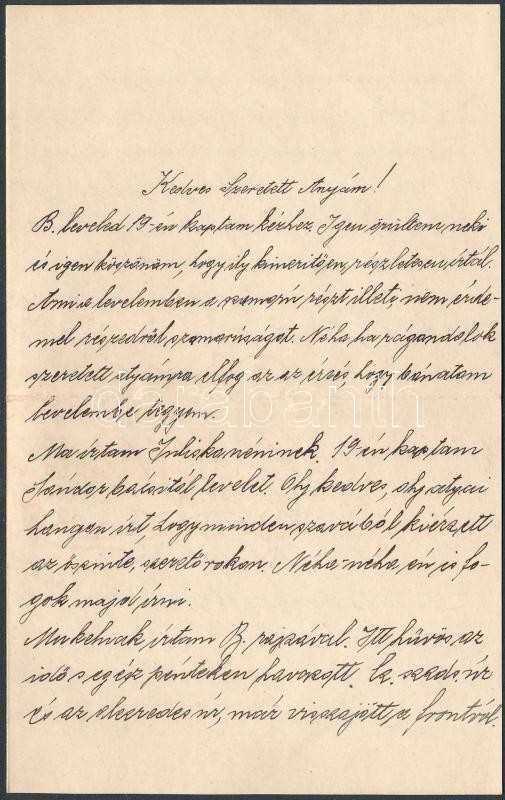 Kedves Szeretett Anyám!
B. leveled 19-én kaptam kézhez. Igen örültem neki
és igen köszönöm, hogy ily kimerítően, részletesen írtál.
Ami a levelemben a szomorú részt illeti, nem érde-
mel részedről szomorúságot. Néha ha rágondolok
szeretett atyámra elfog az az érzés, hogy bánatom
levelembe tegyem.
Ma írtam Juliska néninek. 19-én kaptam
Sándor bácsitól levelet. Oly kedves, oly atyai
hangon írt, hogy minden szavából kiérzett
az őszinte, szerető rokon. Néha-néha én is fo-
gok majd írni.
írtam B. rajzával. Itt hűvös az
idő s egész pénteken havazott. Ez. szds. úr
és az ezredes úr, már visszajött a frontról.
darabanth